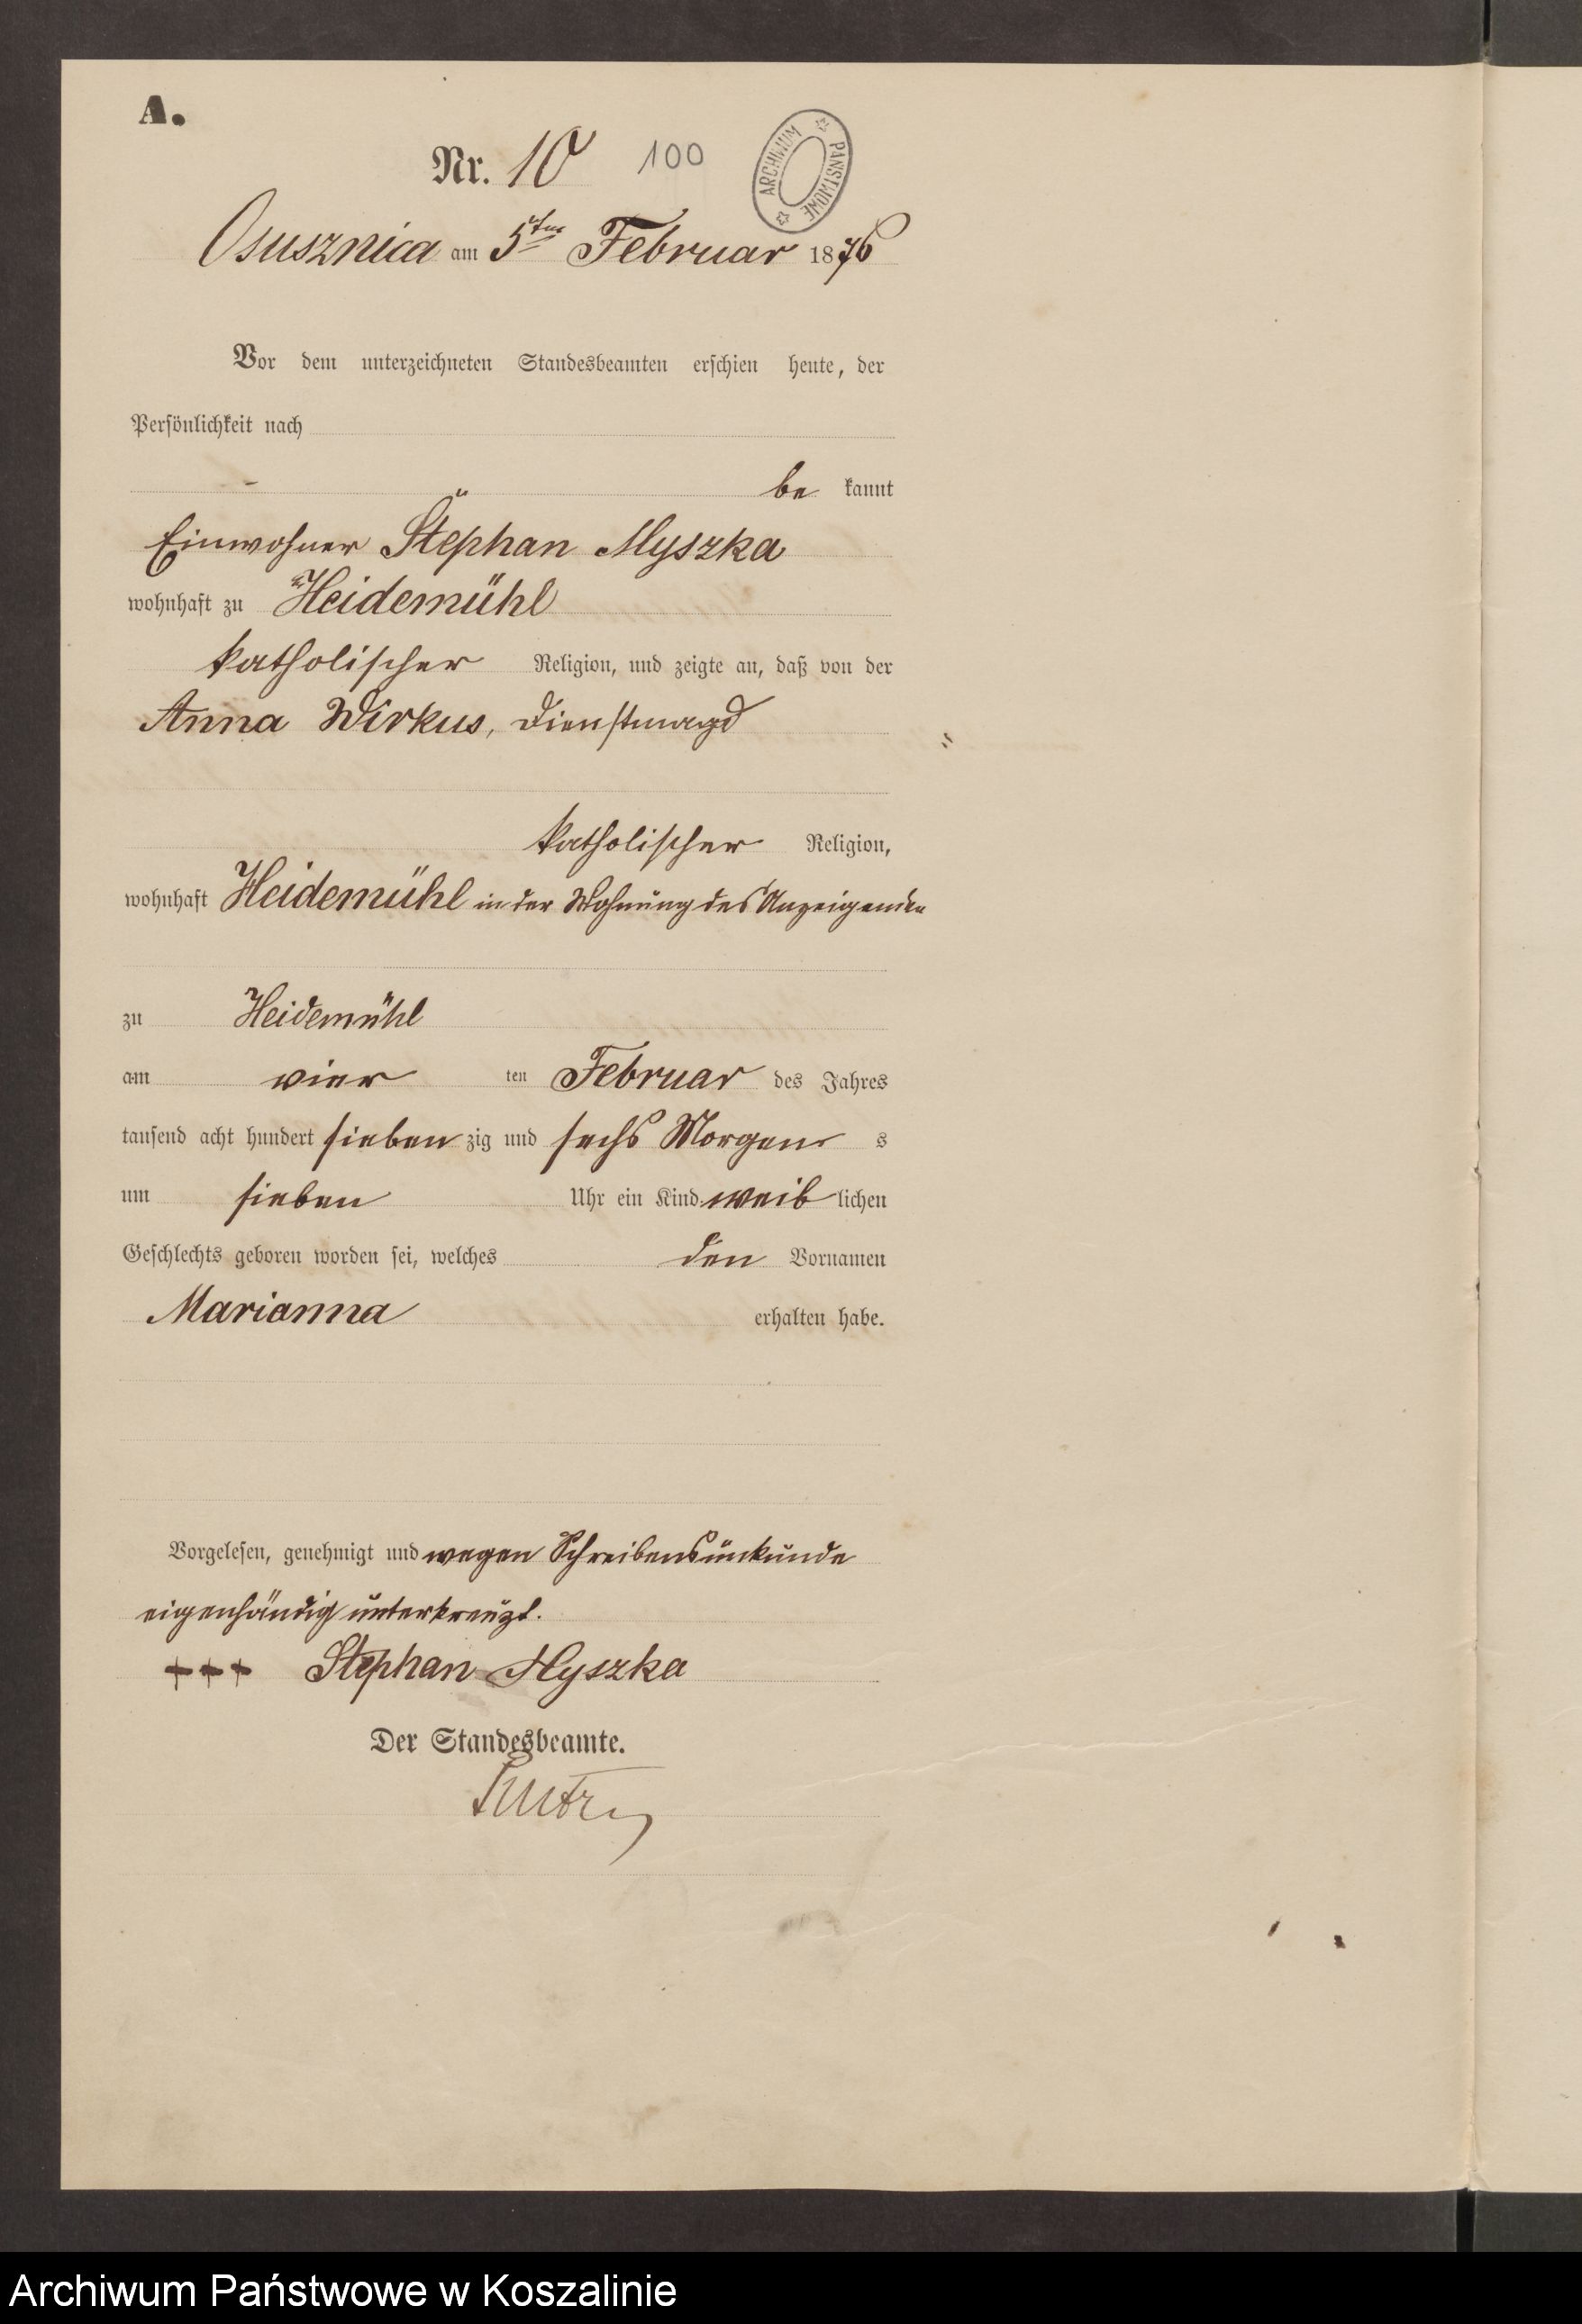 A.
Nr. 10 100
ARCHIWUM PAŃSTWOWE
Osusznica am 5ten Februar 1876
Vor dem unterzeichneten Standesbeamten erschien heute, der
Persönlichkeit nach
be kannt
Einwohner Stephan Myszka
wohnhaft zu Heidemühl
katholischer Religion, und zeigte an, daß von der
Anna Wirkus, Dienstmagd
katholischer Religion,
wohnhaft Heidemühl in der Wohnung des Anzeigenden
zu Heidemühl
am vier ten Februar des Jahres
tausend acht hundert sieben zig und sechs Morgen s
um sieben Uhr ein Kind weib lichen
Geschlechts geboren worden sei, welches den Vornamen
Marianna erhalten habe.
Vorgelesen, genehmigt und wegen Schreibensunkunde
eigenhändig unterkreuzt.
+++ Stephan Myszka
Der Standesbeamte.
Archiwum Państwowe w Koszalinie